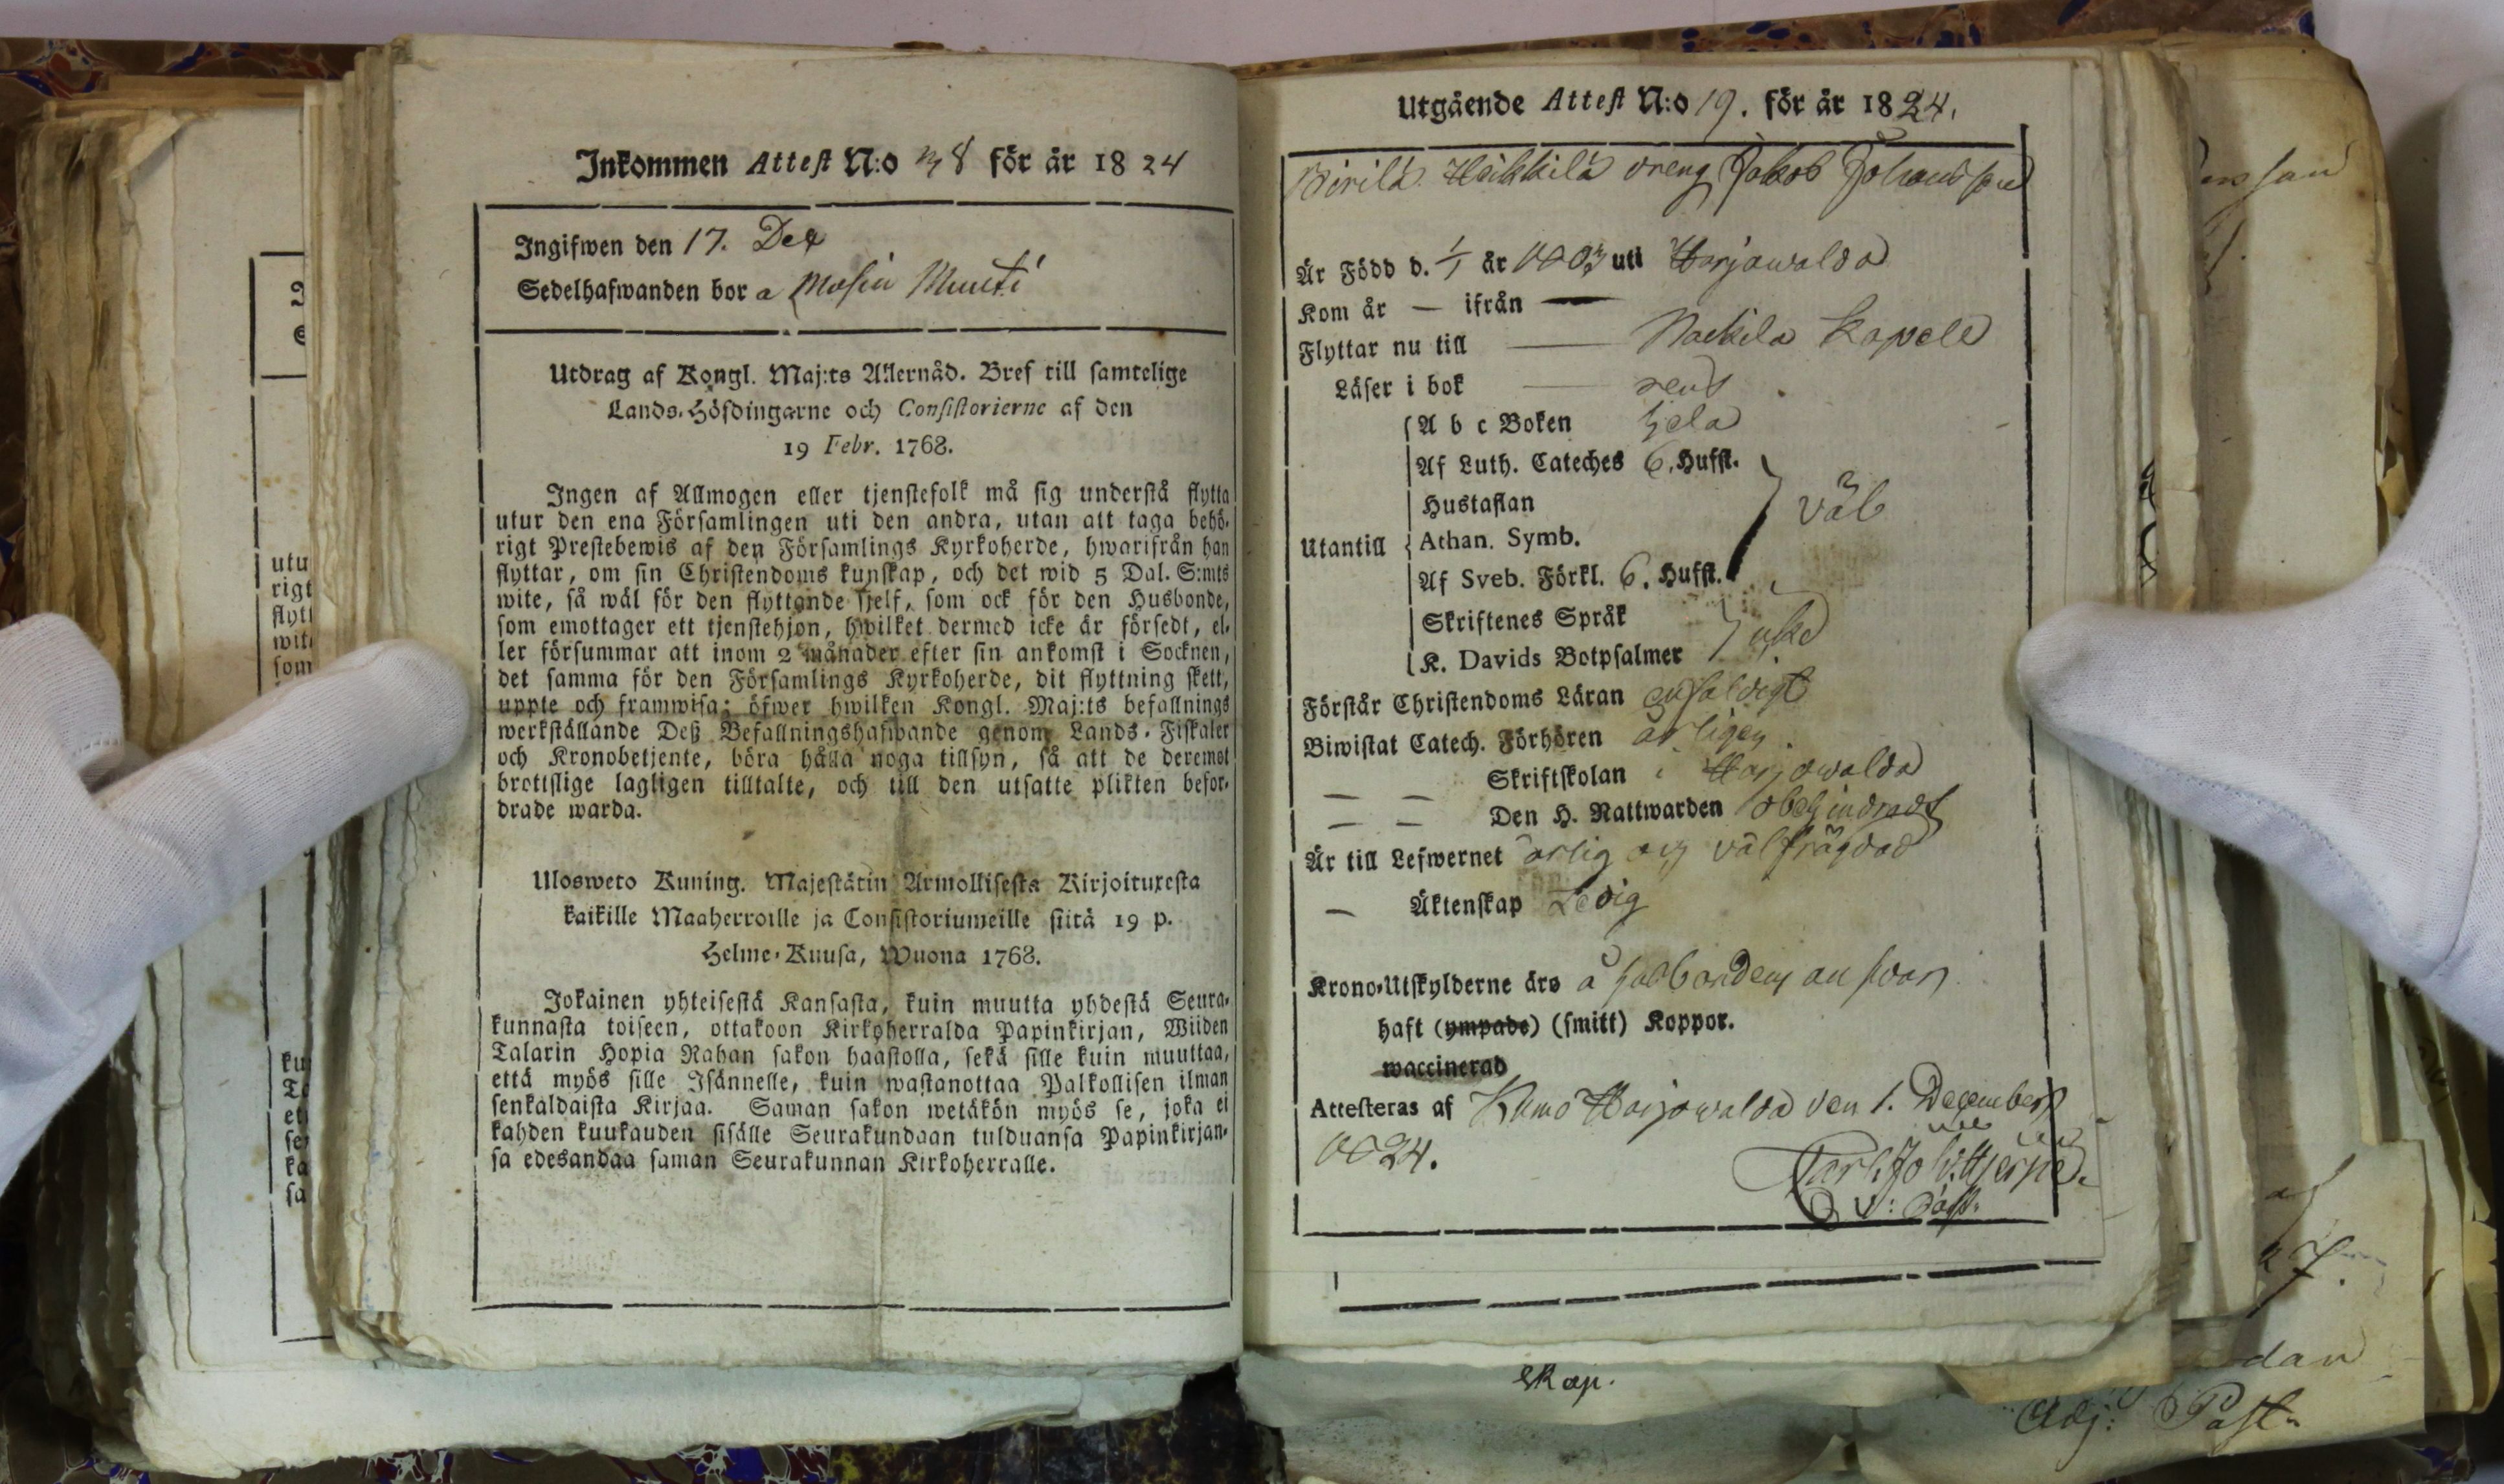 Inkommen Attest N:o 38 för år 1824
Ingifwen den 17. Dec
Sedelhafwanden bor a Masia Muuti
Utdrag af Kongl. Maj:ts Allernåd. Bref till samtelige
Lands-Höfdingarne och Consistorierne af den
19 Febr. 1768.
Ingen af Allmogen eller tjenstefolk må sig understå flytta
utur den ena Församlingen uti den andra, utan att taga behö-
rigt Prestebewis af den Församlings Kyrkoherde, hwarifrån han
flyttar, om sin Christendoms kunskap, och det wid 5 Dal. S:mts
wite, så wäl för den flyttande sjelf, som ock för den Husbonde,
som emottager ett tjenstehjon, hwilket dermed icke är försedt, el-
ler försummar att inom 2 månader efter sin ankomst i Socknen,
det samma för den Församlings Kyrkoherde, dit flyttning skett,
uppte och framwisa; öfwer hwilken Kongl. Maj:ts befallnings
werkställande Deß Befallningshafwande genom Lands-Fiskaler
och Kronobetjente, böra hålla noga tillsyn, så att de deremot
brottslige lagligen tilltalte, och till den utsatte plikten befor-
drade warda.
Ulosweto Kuning. Majestätin Armollisesta Kirjoituxesta
kaikille Maaherroille ja Consistoriumeille siitä 19 p.
Helme-Kuusa, Wuona 1768.
Jokainen yhteisestä Kansasta, kuin muutta yhdestä Seura-
kunnasta toiseen, ottakoon Kirkoherralda Papinkirjan, Wiiden
Talarin Hopia Rahan sakon haastolla, sekä sille kuin muuttaa,
että myös sille Isännelle, kuin wastanottaa Palkollisen ilman
senkaldaista Kirjaa. Saman sakon wetäkön myös se, joka ei
kahden kuukauden sisälle Seurakundaan tulduansa Papinkirjan-
sa edesandaa saman Seurakunnan Kirkoherralle.
Utgående Attest N:o 19. för år 1824.
Pirilä Heikkilä dreng Jakob Johansson
Är Född d. 1/1 år 1803 uti Harjawalda
Kom år — ifrån —
Flyttar nu till — Nackila Kapell
Läser i bok — rent
A b c Boken hela
Af Luth. Cateches 6. Hufst.
Hustaflan
väl
Utantill Athan. Symb.
Af Sveb. Förkl. 6. Hufst.
Skriftenes Språk
K. Davids Botpsalmer
Förstår Christendoms Läran enfaldigt
Biwistat Catech. Förhören årligen
— — Skriftskolan i Harjawalda
— — Den H. Nattwarden obehindradt
Är till Lefwernet ärlig och välfrägdad
— Äktenskap Ledig
Krono-Utskylderne äro å husbondens answar
haft (ympade) (smitt) Koppor.
waccinerad
Attesteras af Kumo Harjawalda den 1. December
1824.
Carl Joh:
V: Past.
Kap.
Adj: Past.